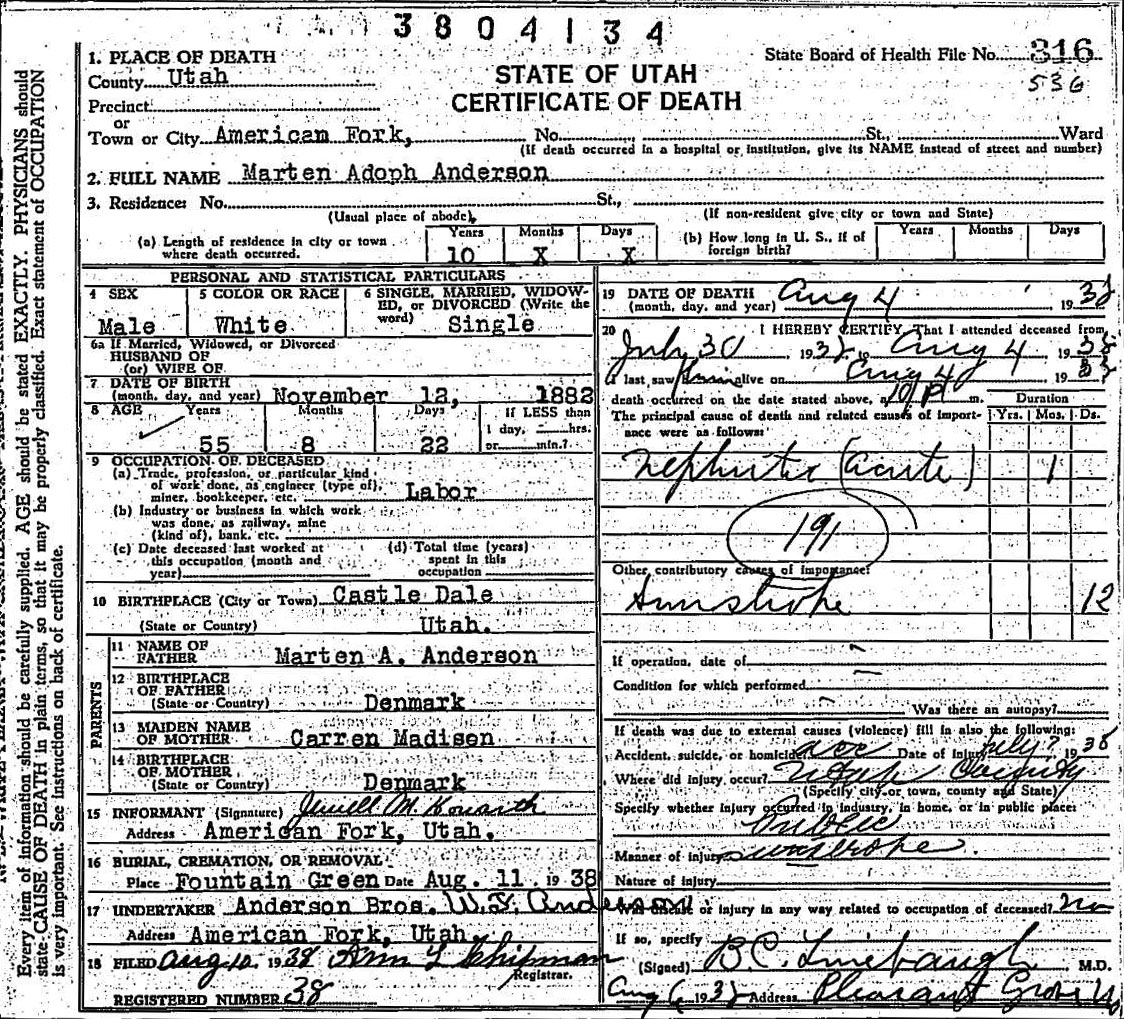 3804134
State Board of Health File No. 316
536
STATE OF UTAH
CERTIFICATE OF DEATH
1. PLACE OF DEATH
County Utah
Precinct
or
Town or City American Fork, No. St., Ward
(If death occurred in a hospital or institution, give its NAME instead of street and number)
2. FULL NAME Marten Adoph Anderson
3. Residence: No. St.,
(Usual place of abode) (If non-resident give city or town and State)
(a) Length of residence in city or town where death occurred. Years 10 Months X Days X (b) How long in U. S., if of foreign birth? Years Months Days
PERSONAL AND STATISTICAL PARTICULARS
4 SEX Male
5 COLOR OR RACE White
6 SINGLE, MARRIED, WIDOWED, or DIVORCED (Write the word) Single
6a If Married, Widowed, or Divorced
HUSBAND OF
(or) WIFE OF
7 DATE OF BIRTH
(month, day, and year) November 12, 1882
8 AGE Years 55 Months 8 Days 22 If LESS than 1 day, hrs. or min.?
9 OCCUPATION OF DECEASED
(a) Trade, profession, or particular kind
of work done, as engineer (type of),
miner, bookkeeper, etc. Labor
(b) Industry or business in which work
was done, as railway, mine
(kind of), bank, etc.
(c) Date deceased last worked at this occupation (month and year)
(d) Total time (years) spent in this occupation
10 BIRTHPLACE (City or Town) Castle Dale
(State or Country) Utah.
PARENTS
11 NAME OF FATHER Marten A. Anderson
12 BIRTHPLACE OF FATHER
(State or Country) Denmark
13 MAIDEN NAME OF MOTHER Carren Madisen
14 BIRTHPLACE OF MOTHER
(State or Country) Denmark
15 INFORMANT (Signature)
Address American Fork, Utah.
16 BURIAL, CREMATION, OR REMOVAL
Place Fountain Green Date Aug. 11 1938
17 UNDERTAKER Anderson Bros. W.S. Anderson
Address American Fork, Utah.
18 FILED Aug 10, 1938 Chipman
Registrar.
REGISTERED NUMBER 38
19 DATE OF DEATH
(month, day, and year) Aug 4 1938
20 I HEREBY CERTIFY, That I attended deceased from
July 30 1938 to Aug 4 1938
I last saw him alive on Aug 4 1938
death occurred on the date stated above, at 10 P m. Duration
The principal cause of death and related causes of importance were as follows: Yrs. Mos. Ds.
Nephritis (acute) 1
191
Other contributory causes of importance:
Sunstroke 12
If operation, date of
Condition for which performed
Was there an autopsy?
If death was due to external causes (violence) fill in also the following:
Accident, suicide, or homicide? acc Date of Injury July ? 1938
Where did injury occur? Utah County
(Specify city or town, county and State)
Specify whether injury occurred in industry, in home, or in public place:
Public
Manner of injury sunstroke.
Nature of injury
Was disease or injury in any way related to occupation of deceased? no
If so, specify
(Signed) B.C. Linebaugh M.D.
Aug 6 1938 Address Pleasant Grove
Every item of information should be carefully supplied. AGE should be stated EXACTLY. PHYSICIANS should
state CAUSE OF DEATH in plain terms, so that it may be properly classified. Exact statement of OCCUPATION
is very important. See instructions on back of certificate.